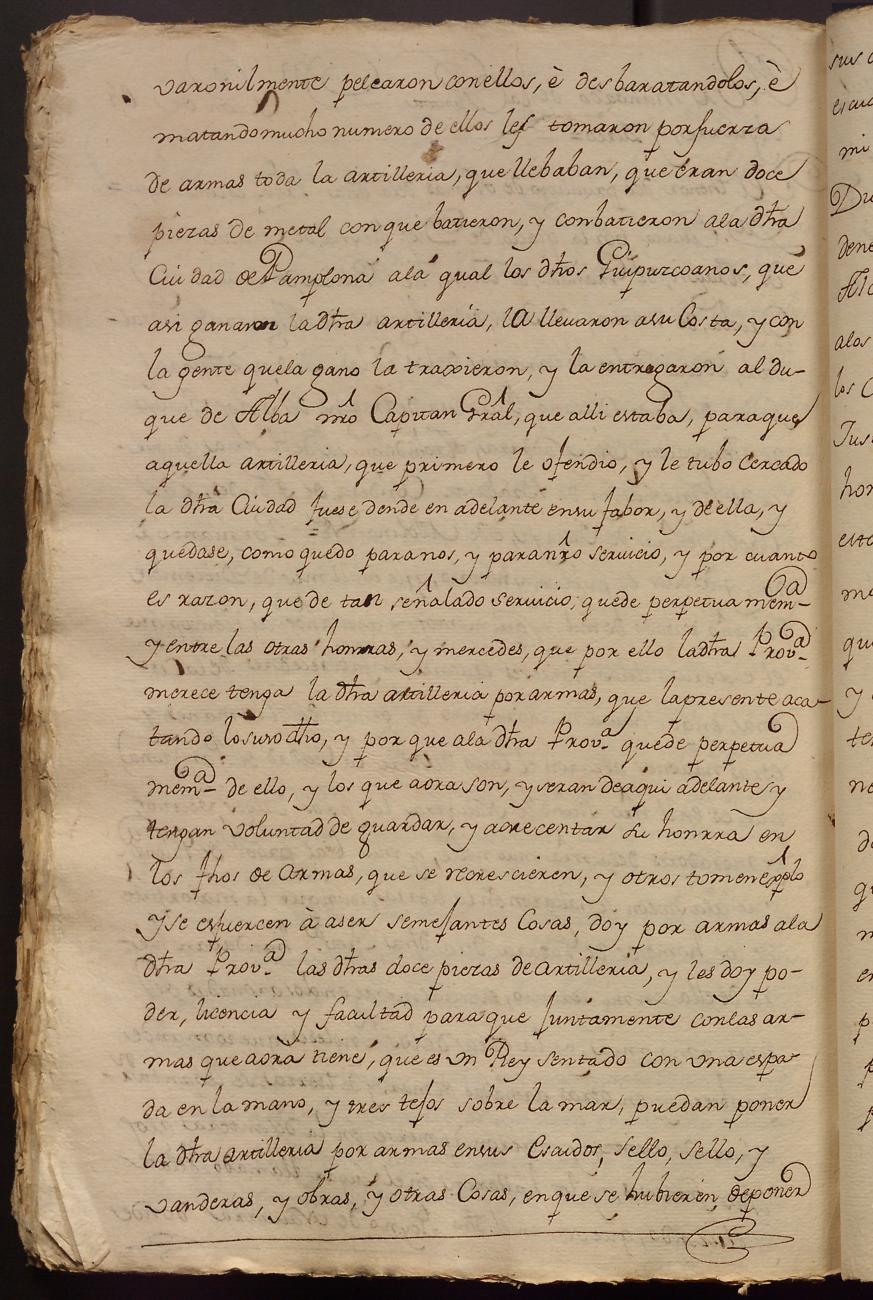 varonilmente pelearon con ellos, è desbaratandolos, è
matando mucho numero de ellos les tomaron por fuerza
de armas toda la artilleria, que llebaban, que èran doce
piezas de metal con que batieron, y conbatieron ala dhã
Ciudad de Pamplona ala qual los dhõs Guipuzcoanos, que
asi ganaron la dhã artilleria, la llevaron a su Costa, y con
la gente que la gano la traxieron, y la entregaron al du-
que de Alba nrõ Capitan Grâl, que alli estaba, para que
aquella artilleria, que primero le ofendio, y le tubo Cercado
la dhã Ciudad fuese dende en adelante en su fabor, y de ella, y
quedase, como quedo para nos, y para nrõ servicio, y por cuanto
es razon, que de tan señalado servicio, quede perpetua mem.a
y entre las otras honrras, y mercedes, que por ello la dhã Prov.a
merece tenga la dhã artilleria por armas, que la presente aca-
tando lo suso dhõ, y por que ala dhã Prov.a quede perpetua
mem.a de ello, y los que aora son, y seran de aqui adelante y
tengan voluntad de guardar, y acrecentar su honrra en
los fhos de Armas, que se recrescieren, y otros tomen exp̂lo
y se esfuercen à aser semejantes Cosas, doy por armas ala
dhã Prov.a las dhãs doce piezas de artilleria, y les doy po-
der, licencia y facultad para que juntamente con las ar-
mas que aora tiene, que es un Rey sentado con una espa-
da en la mano, y tres tejos sobre la mar, puedan poner
la dhã artilleria por armas en sus Escudos, sello, sello, y
vanderas, y obras, y otras Cosas, en que se hubieren de poner